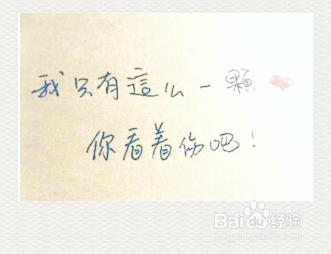 我只有這么一顆
你看着伤吧!
Baidu 经验